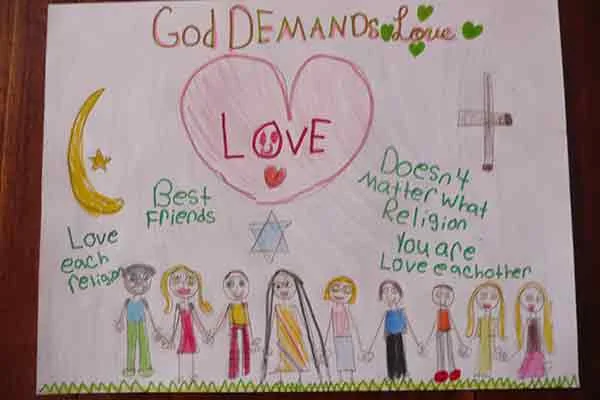 GOD DEMANDS Love
LOVE
Best
Friends
Love
each
religion
Doesn't
Matter what
Religion
You are
Love eachother